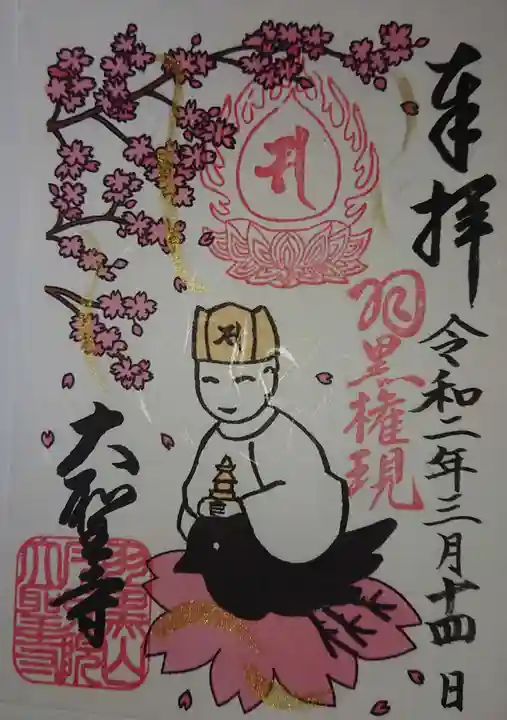 奉拝
令和二年三月十四日
羽黒権現
大聖寺